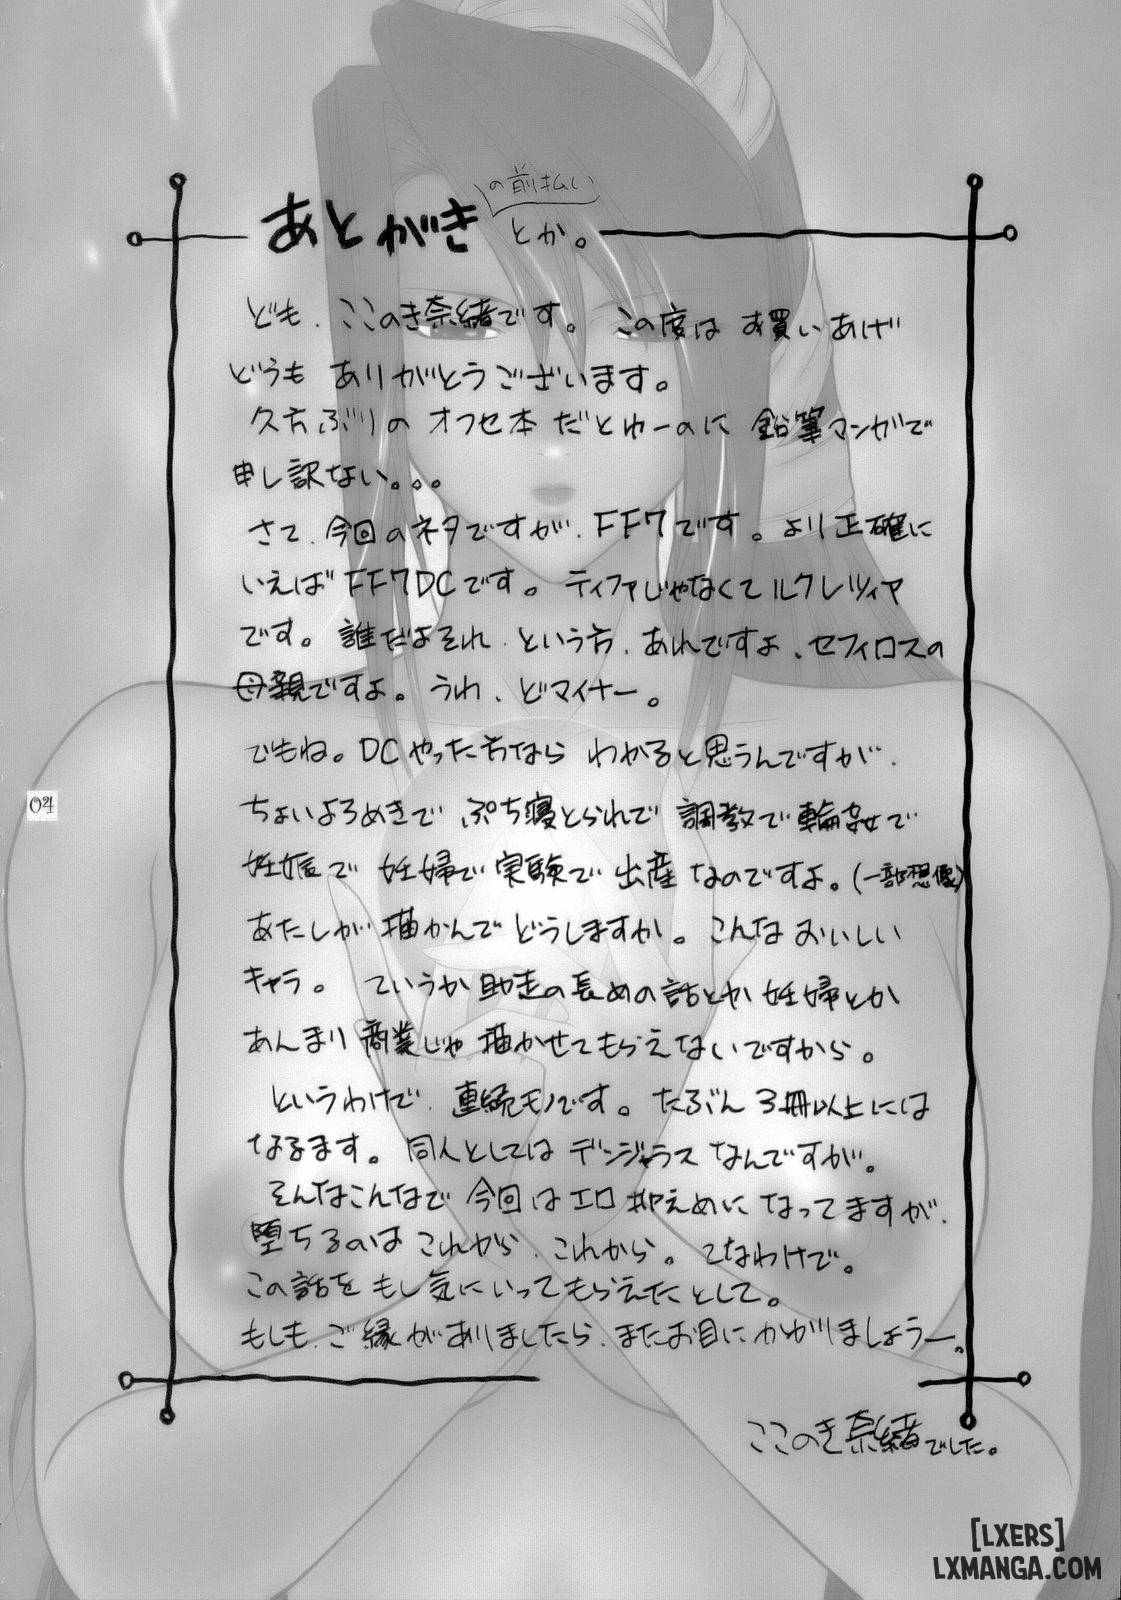 あとがき
の前払い
とか。
ども、ここのき奈緒です。この度は お買いあげ
どうも ありがとうございます。
久方ぶりの オフセ本 だとゆーのに 鉛筆マンガで
申し訳ない。。。
さて、今回のネタですが、FF7です。より正確に
いえば FF7DCです。ティファじゃなくて ルクレツィア
です。誰だよそれ、という方、あれですよ、セフィロスの
母親ですよ。うわ、どマイナー。
でもね。DCやった方なら わかると思うんですが、
ちょいよろめきで ぷち寝とられで 調教で輪姦で
妊娠で 妊婦で 実験で 出産なのですよ。(一部想像)
あたしが 描かんで どうしますか。こんな おいしい
キャラ。 ていうか 助走の長めの話とか 妊婦とか
あんまり 商業じゃ 描かせてもらえないですから。
というわけで、連続モノです。たぶん 3冊以上には
なるます。同人としては デンジャラス なんですが。
そんなこんなで 今回は エロ 抑えめに なってますが、
堕ちるのは これから、これから。てなわけで。
この話を もし気にいってもらえたとして。
もしも、ご縁がありましたら、またお目にかかりましょうー。
ここのき奈緒でした。
04
[LXERS]
LXMANGA.COM